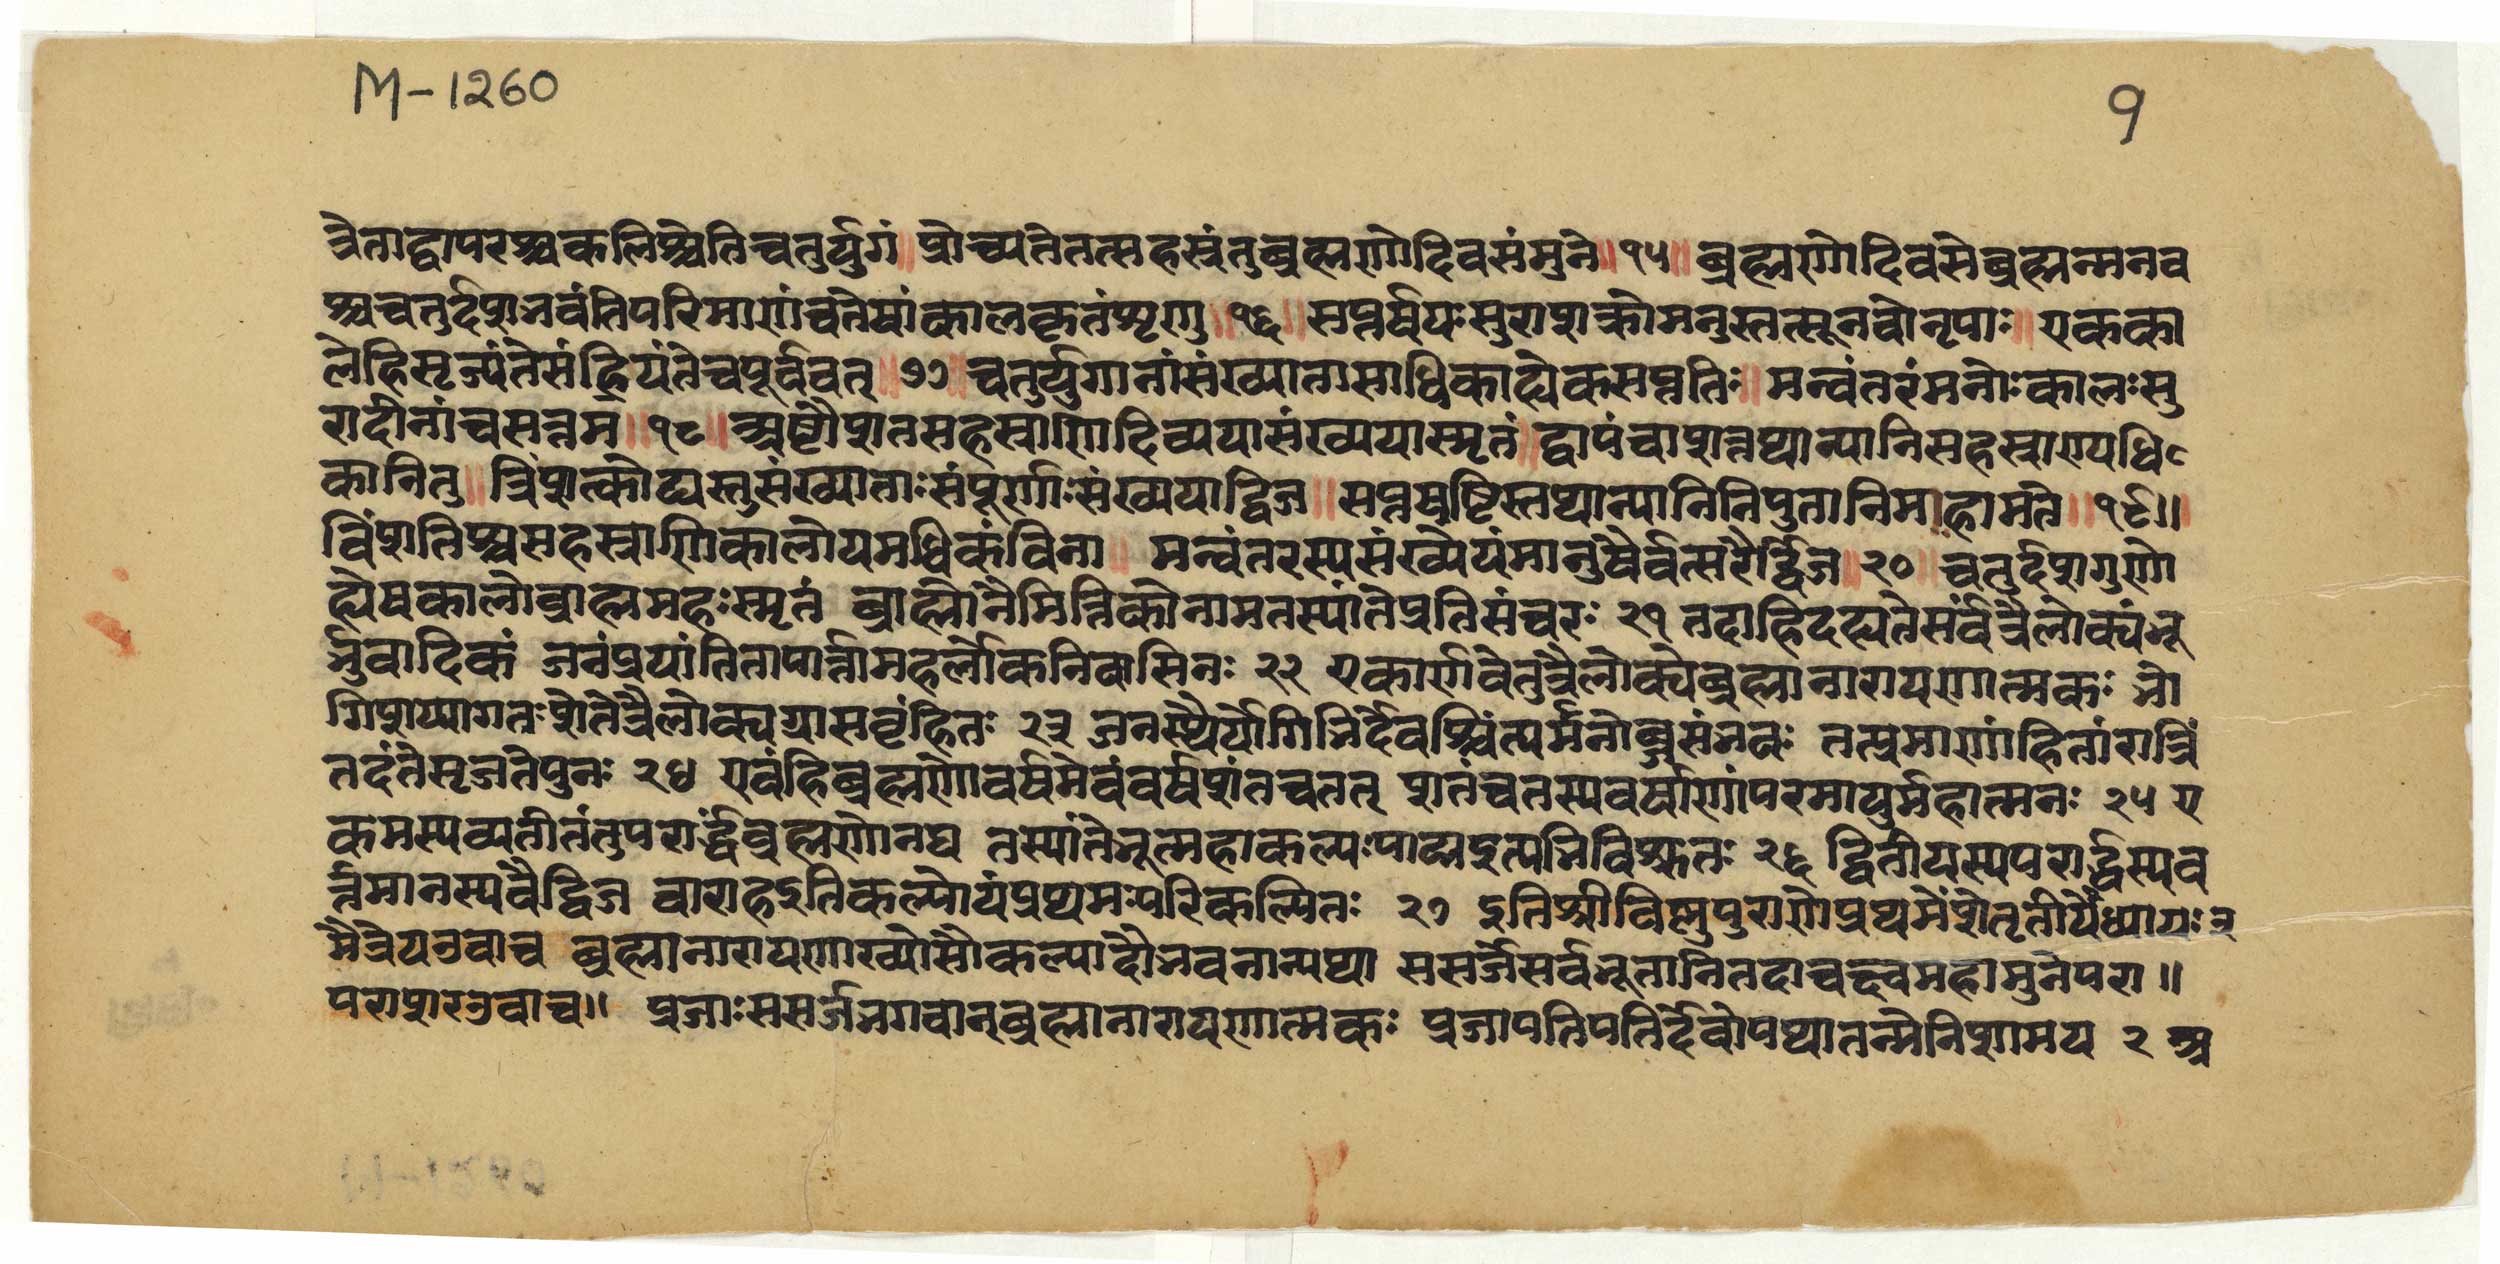 M-1260
१
त्रेताद्वापरश्चकलिश्चेतिचतुर्युगं॥ प्रोच्यतेतत्सहस्रंतुब्रह्मणोदिवसंमुने॥ १५॥ ब्रह्मणोदिवसेब्रह्मन्मनव
श्चचतुर्दशभवंतिपरिमाणंचतेषांकालकृतंशृणु॥ १६॥ सप्तर्षयःसुराशक्रोमनुस्तत्सूनवोनृपाः॥ एकका
लेहिसृज्यंतेसंह्रियंतेचपूर्ववत्॥ १७॥ चतुर्युगानांसंख्यातासाधिकाह्येकसप्ततिः॥ मन्वंतरंमनोःकालःसु
रादीनांचसत्तम॥ १८॥ अष्टौशतसहस्राणिदिव्ययासंख्ययास्मृतं॥ द्वापंचाशत्तथान्यानिसहस्राण्यधि
कानितु॥ त्रिंशत्कोट्यस्तुसंख्याताःसंपूर्णाःसंख्ययाद्विज॥ सप्तषष्टिस्तथान्यानिनियुतानिमहामते॥ १९॥
विंशतिश्चसहस्राणिकालोयमधिकंविना॥ मन्वंतरस्यसंख्येयंमानुषैर्वत्सरैर्द्विज॥ २०॥ चतुर्दशगुणो
ह्येषकालोब्राह्ममहःस्मृतं ब्राह्मोनैमित्तिकोनामतस्यांतेप्रतिसंचरः २१ तदाहिदह्यतेसर्वंत्रैलोक्यंभू
र्भुवादिकं जनंप्रयांतितापार्त्तामहर्लोकनिवासिनः २२ एकार्णवेतुत्रैलोक्येब्रह्मानारायणात्मकः भो
गिशय्यागतःशेतेत्रैलोक्यग्रासवृंहितः २३ जनस्थैर्योगिभिर्देवश्चिंत्यमनोब्जसंभवः तत्प्रमाणांहितांरात्रिं
तदंतेसृजतेपुनः २४ एवंहिब्रह्मणोवर्षमेवंवर्षशतंचतत् शतंचतस्यवर्षाणांपरमायुर्महात्मनः २५ ए
कमस्यव्यतीतंतुपरार्द्धंब्रह्मणोनघ तस्यांतेभूत्महाकल्पःपाद्मइत्यभिविश्रुतः २६ द्वितीयस्यपरार्द्धस्यव
र्त्तमानस्यवैद्विज वाराहइतिकल्पोयंप्रथमःपरिकल्पितः २७ इतिश्रीविष्णुपुराणेप्रथमेंशेतृतीयोध्यायः ३
मैत्रेयउवाच ब्रह्मानारायणाख्योसौकल्पादौभगवान्यथा ससर्जसर्वभूतानितदाचक्ष्वमहामुनेपरा॥
पराशरउवाच॥ प्रजाःससर्जभगवान्ब्रह्मानारायणात्मकः प्रजापतिपतिर्देवोयथातन्मेनिशामय २ अ